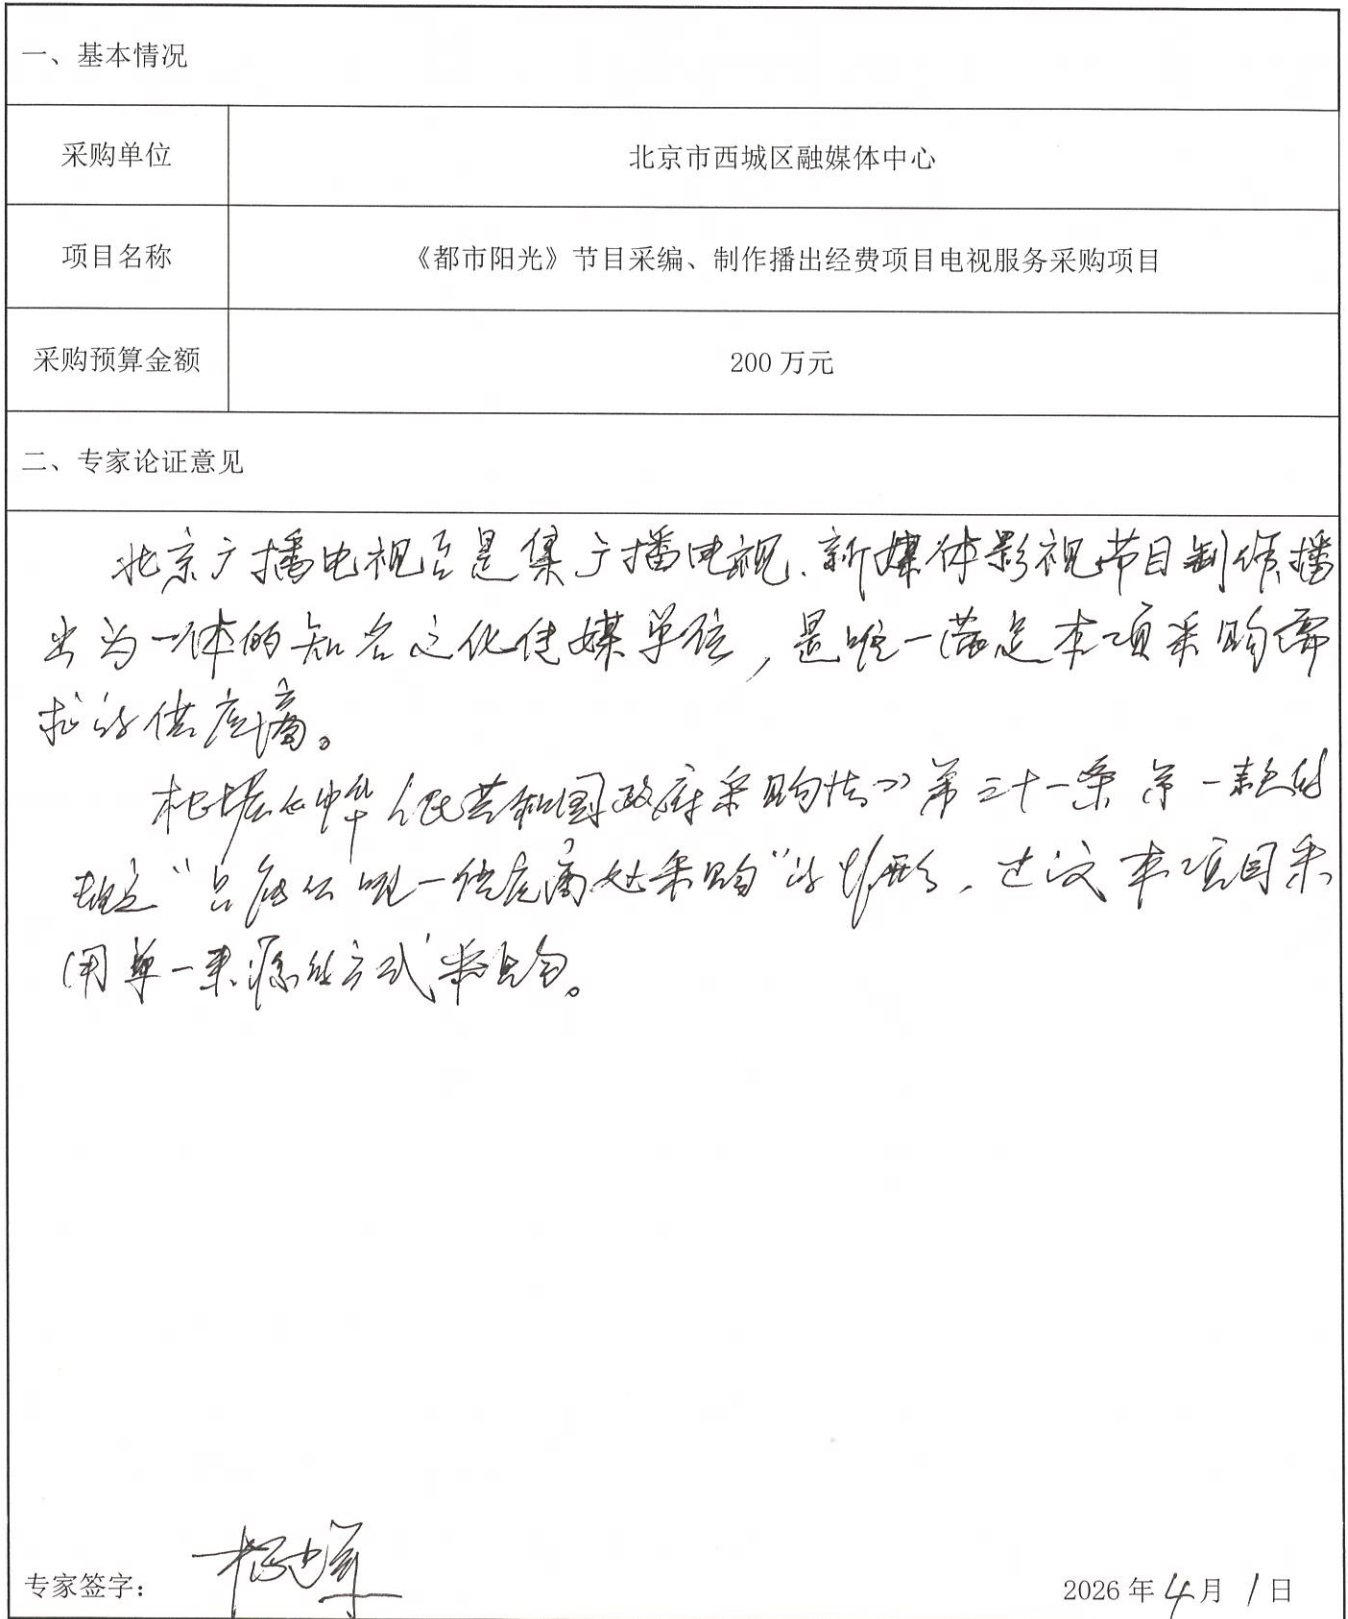 一、基本情况
采购单位 北京市西城区融媒体中心
项目名称 《都市阳光》节目采编、制作播出经费项目电视服务采购项目
采购预算金额 200 万元
二、专家论证意见
北京广播电视台是集广播电视、新媒体影视节目制作播
出为一体的知名文化传媒单位，是唯一满足本项采购需
求的供应商。
根据《中华人民共和国政府采购法》第三十一条第一款的
规定“只能从唯一供应商处采购”的情形，建议本项目采
用单一来源的方式采购。
专家签字：
2026 年 4 月 1 日